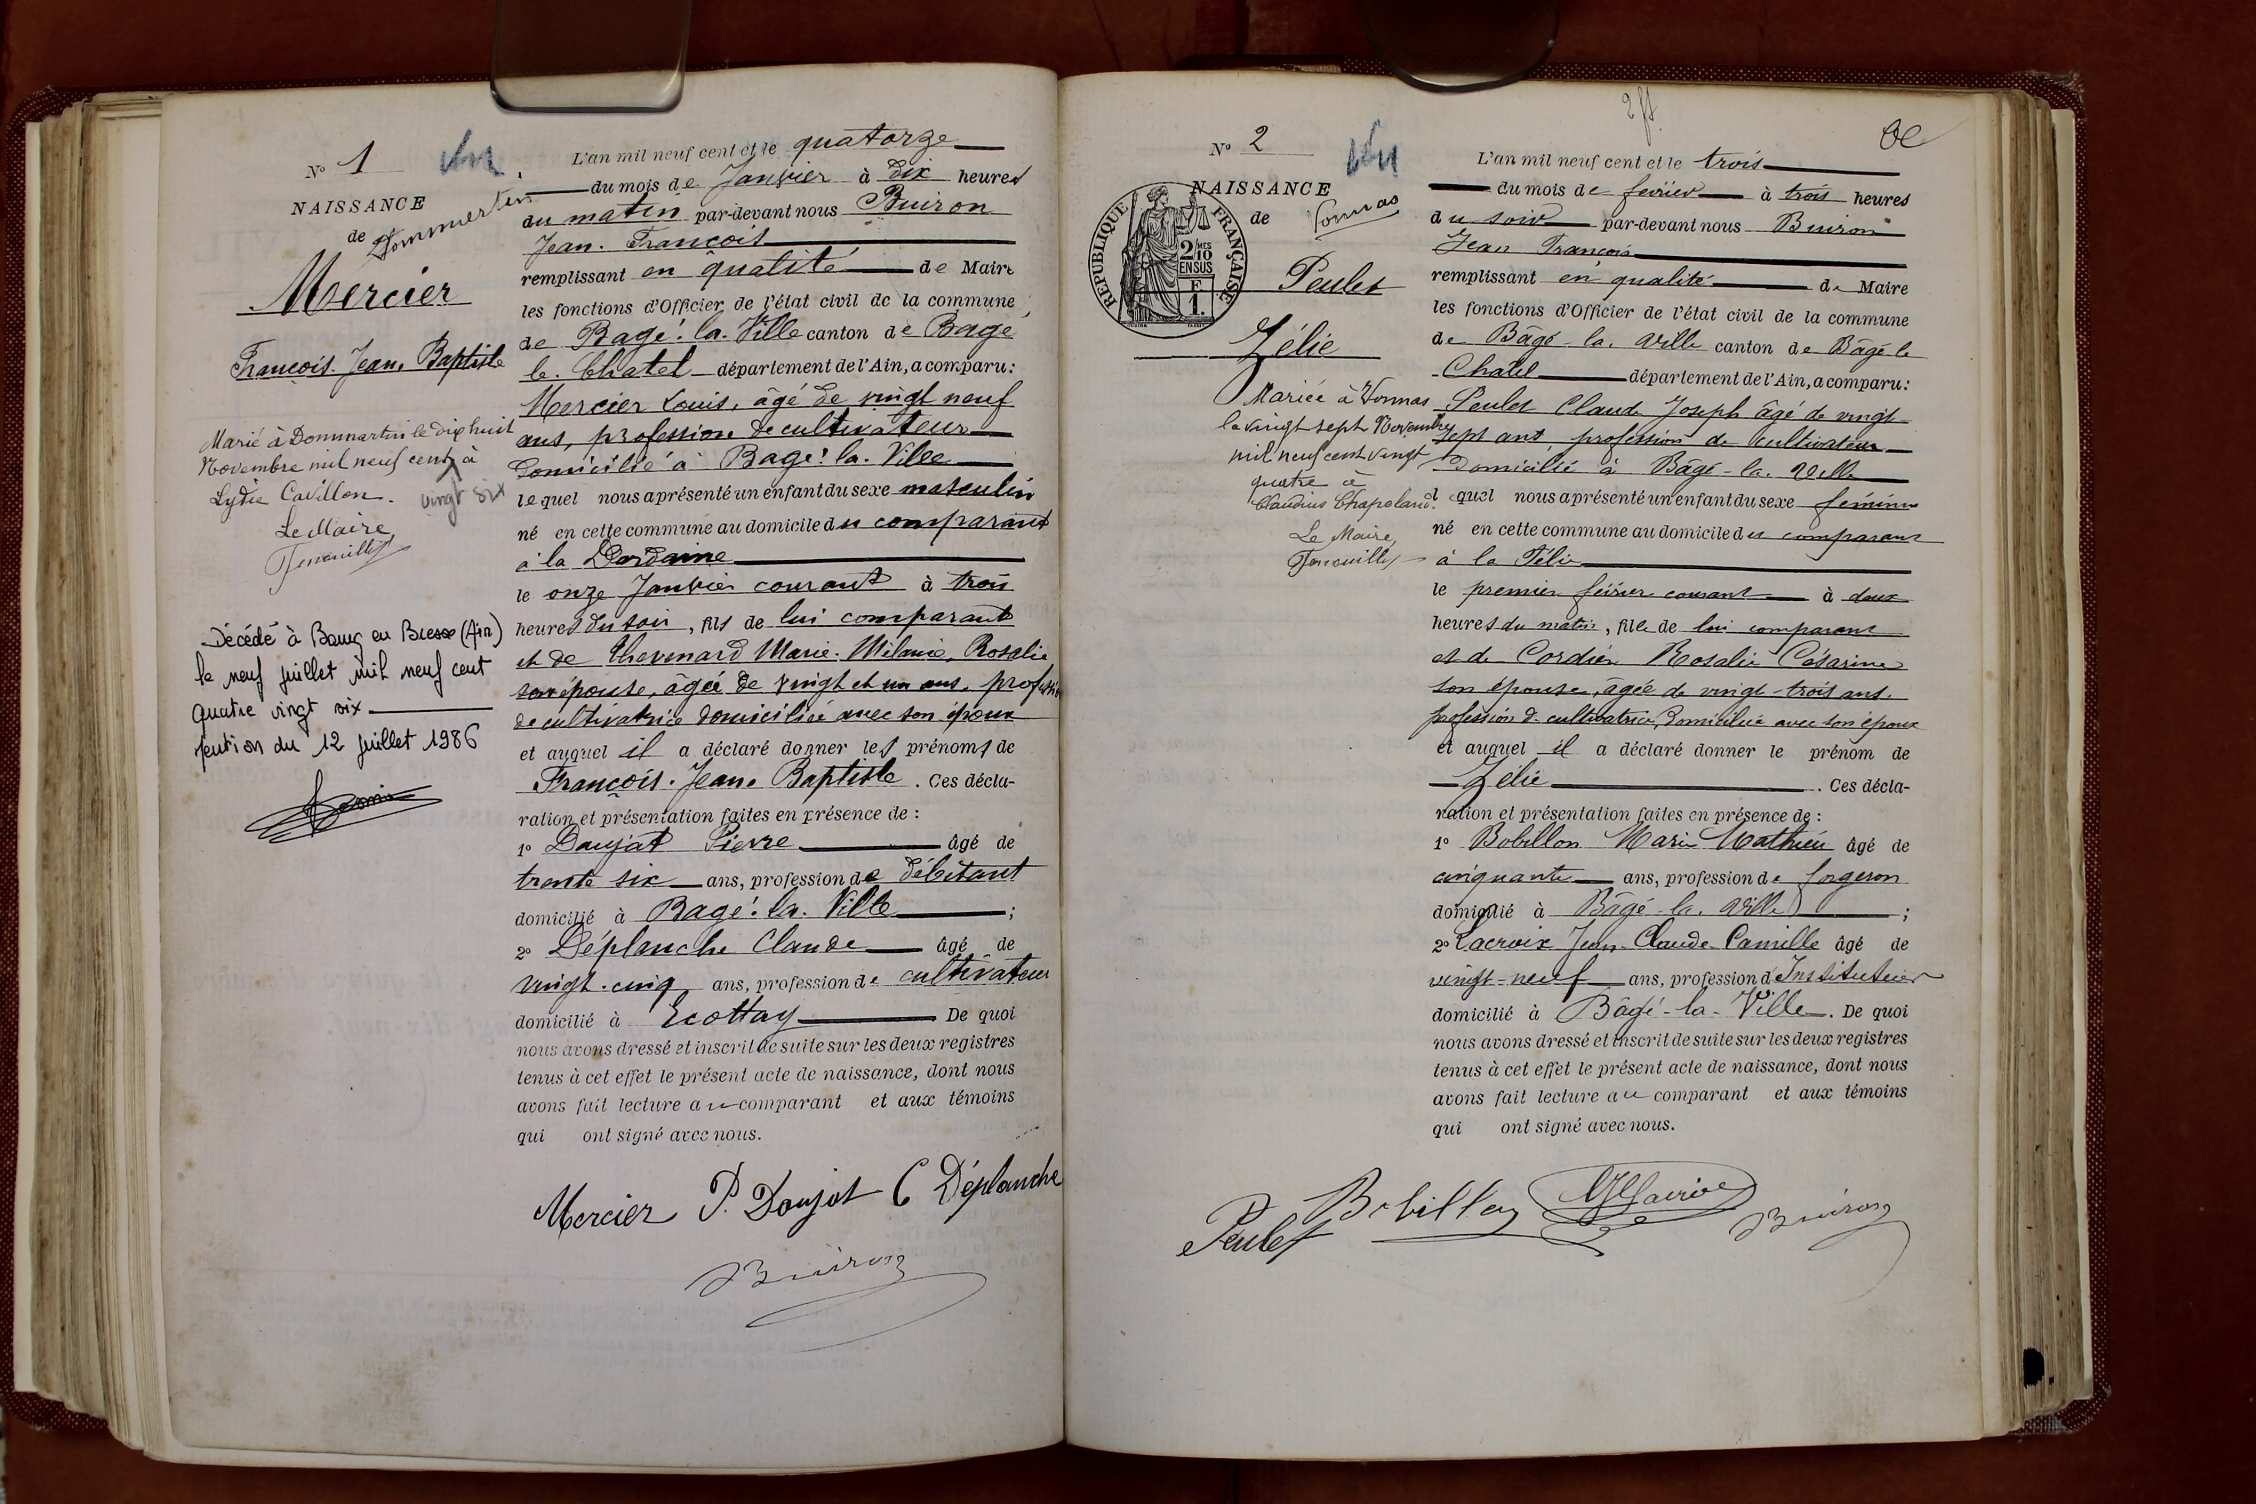 N° 1
Vu
NAISSANCE
de
Dommartin
Mercier
François. Jean. Baptiste
Marié à Dommartin le dix huit
Novembre mil neuf cent vingt six à
Lydie Cavillon.
Le Maire
Décédé à Bourg en Bresse (Ain)
le neuf juillet mil neuf cent
quatre vingt six
mention du 12 juillet 1986
L'an mil neuf cent et le quatorze
du mois de Janvier à dix heures
du matin par-devant nous Buiron
Jean. François
remplissant en qualité de Maire
les fonctions d'Officier de l'état civil de la commune
de Bagé. la. Ville canton de Bagé
le. Chatel département de l'Ain, a comparu:
Mercier Louis, âgé de vingt neuf
ans, profession de cultivateur
domicilié à Bagé. la. Ville
lequel nous a présenté un enfant du sexe masculin
né en cette commune au domicile du comparant
à la Dardaine
le onze Janvier courant à trois
heures du soir, fils de lui comparant
et de Thevenard Marie. Mélanie. Rosalie
son épouse, âgée de vingt et un ans, profession
de cultivatrice domiciliée avec son époux
et auquel il a déclaré donner les prénoms de
François. Jean. Baptiste. Ces décla-
ration et présentation faites en présence de :
1° Daujat Pierre âgé de
trente six ans, profession de débitant
domicilié à Bagé. la. Ville ;
2° Déplanche Claude âgé de
vingt. cinq ans, profession de cultivateur
domicilié à Ecottay De quoi
nous avons dressé et inscrit de suite sur les deux registres
tenus à cet effet le présent acte de naissance, dont nous
avons fait lecture au comparant et aux témoins
qui ont signé avec nous.
Mercier P. Daujat C Déplanche
Buiron
N° 2
Vu
NAISSANCE
de
Vonnas
RÉPUBLIQUE FRANÇAISE
2/10
EN SUS
F
1.
Peulet
Zélie
Mariée à Vonnas
le vingt sept Novembre
mil neuf cent vingt
quatre à
Claudius Chapeland.
Le Maire,
L'an mil neuf cent et le trois
du mois de février à trois heures
du soir par-devant nous Buiron
Jean François
remplissant en qualité de Maire
les fonctions d'Officier de l'état civil de la commune
de Bâgé-la. Ville canton de Bâgé le
Châtel département de l'Ain, a comparu:
Peulet Claude Joseph âgé de vingt
sept ans, profession de cultivateur
domicilié à Bâgé-la. Ville
lequel nous a présenté un enfant du sexe féminin
né en cette commune au domicile du comparant
à la Félie
le premier février courant à deux
heures du matin, fille de lui comparant
et de Cordier Rosalie Césarine
son épouse, âgée de vingt-trois ans.
profession de cultivatrice, domiciliée avec son époux
et auquel il a déclaré donner le prénom de
Zélie. Ces décla-
ration et présentation faites en présence de :
1° Bobillon Marie Mathieu âgé de
cinquante ans, profession de forgeron
domicilié à Bâgé-la. Ville ;
2° Lacroix Jean-Claude-Camille âgé de
vingt-neuf ans, profession d'Instituteur
domicilié à Bâgé-la-Ville. De quoi
nous avons dressé et inscrit de suite sur les deux registres
tenus à cet effet le présent acte de naissance, dont nous
avons fait lecture au comparant et aux témoins
qui ont signé avec nous.
Peulet Bobillon Lacroix Buiron